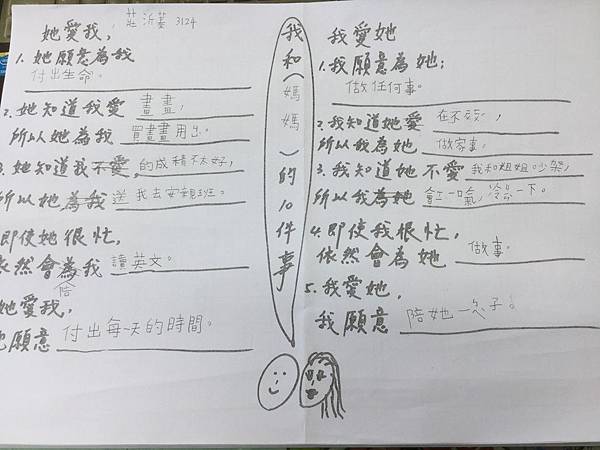 她愛我，
莊沂蓁 3124
1. 她願意為我
付出生命。
2. 她知道我愛 畫畫，
所以她為我 買畫畫用出。
3. 她知道我不愛， 的成積不太好，
所以她為我 送我去安親班。
即使她很忙，
依然會為我 讀英文。
陪
她愛我，
她願意 付出每一天的時間。
我和（媽媽）的10件事
我愛她
1. 我願意為她：
做任何事。
2. 我知道她愛
所以我為她 做家事。
3. 我知道她不愛 我和姐姐吵架，
所以我為她 一口氣，冷靜一下。
4. 即使我很忙，
依然會為她 做事。
5. 我愛她，
我願意 陪她一輩子。